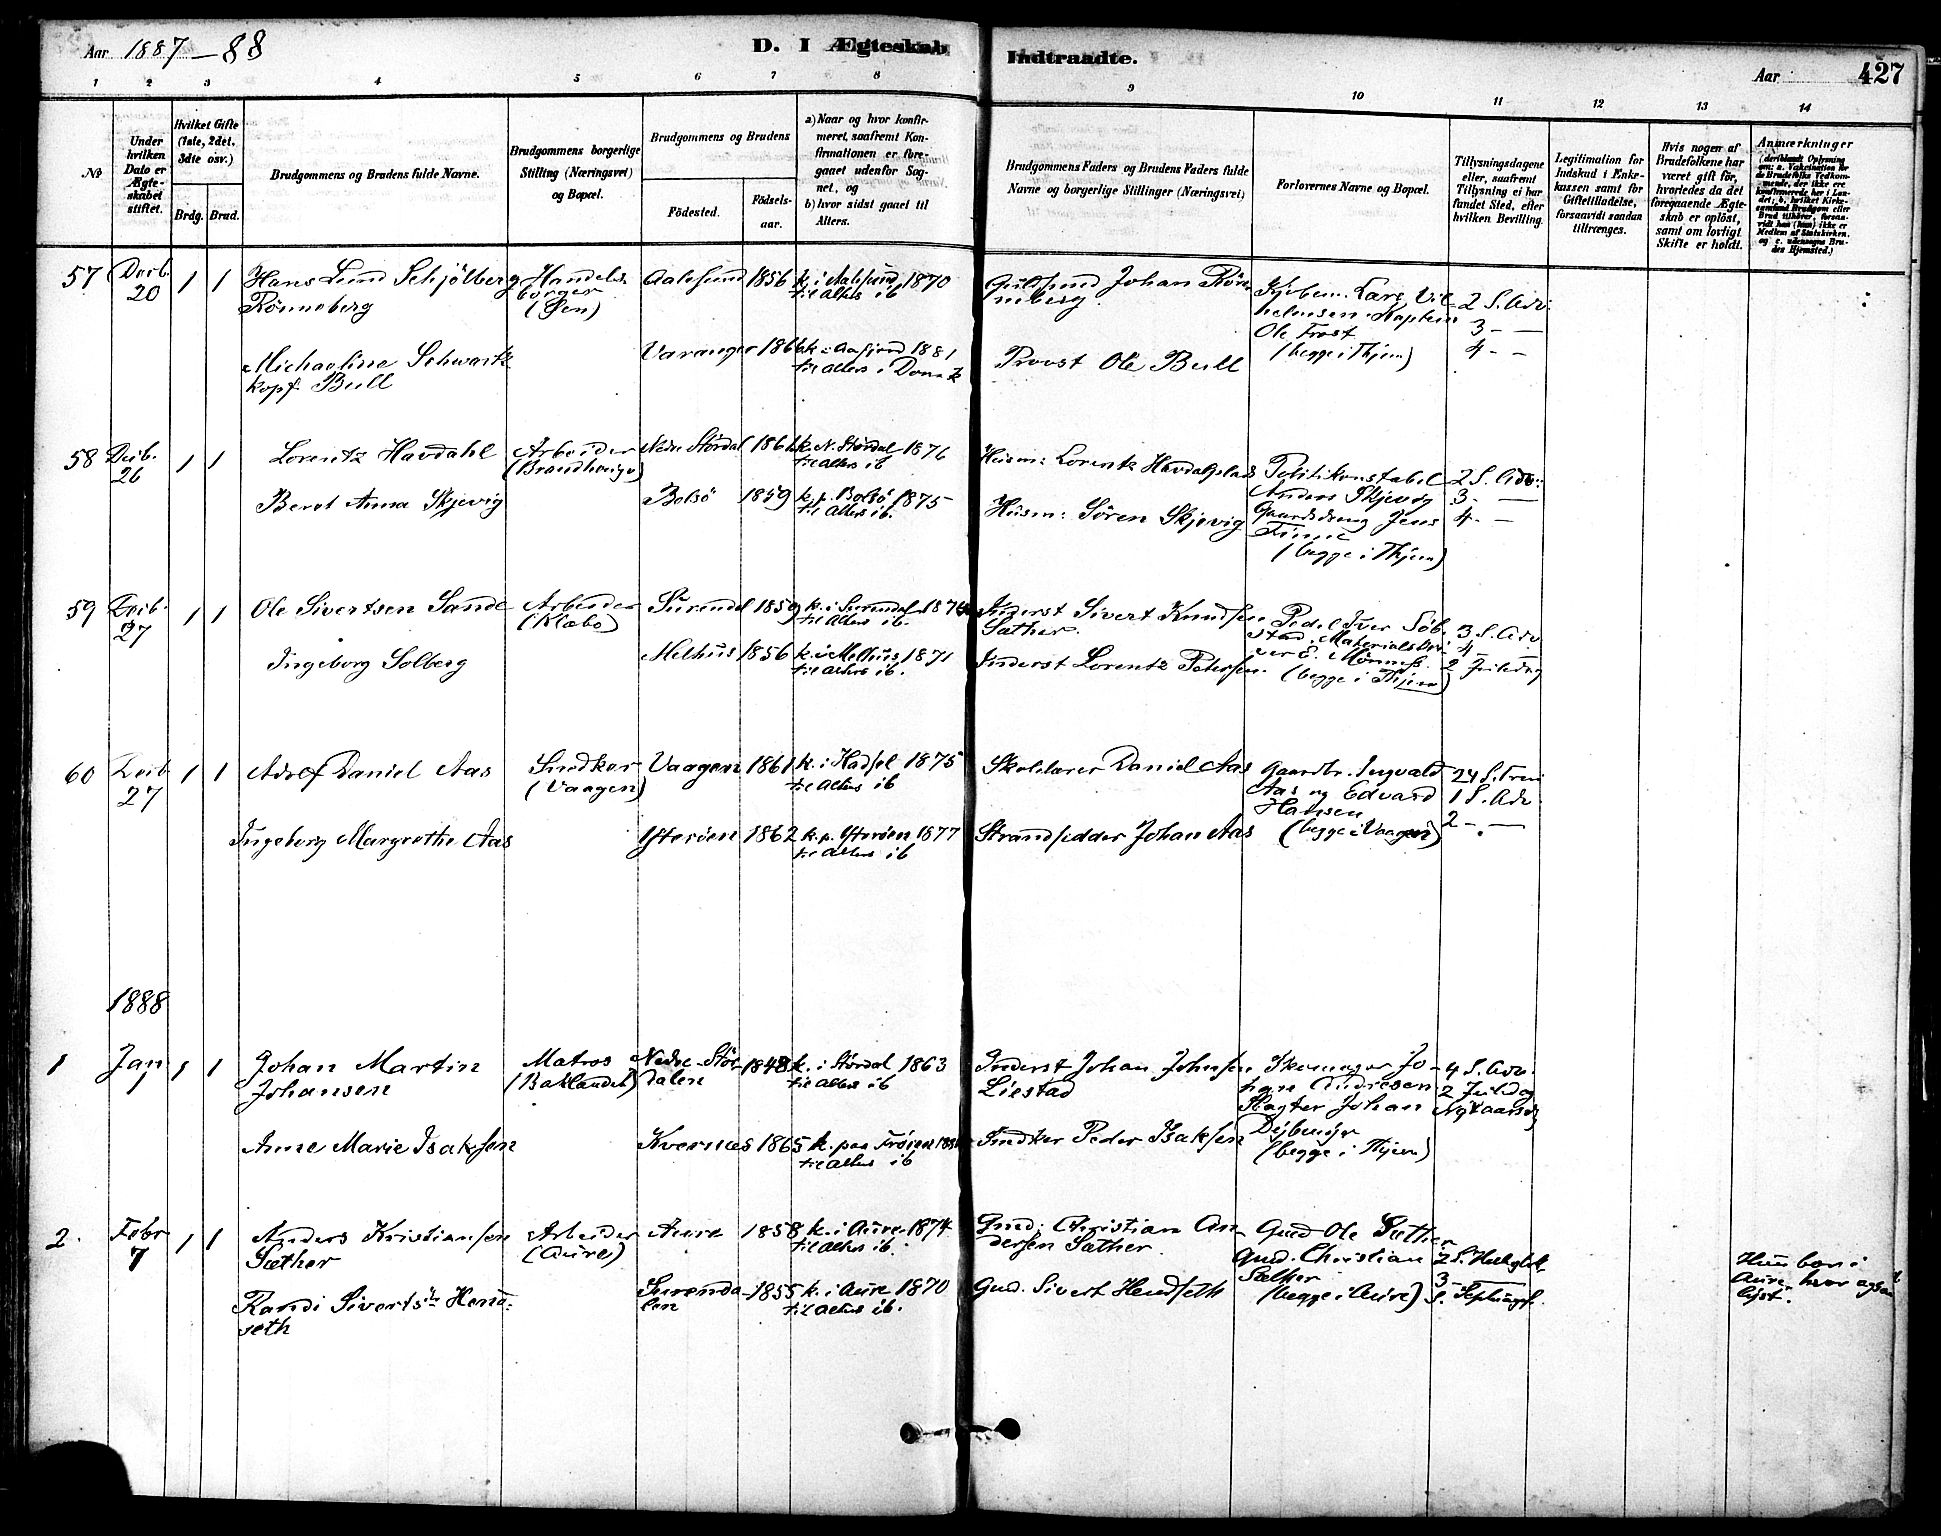 Aar 1887-88
D. I Ægteskab
Indtraadte.
Aar
427
1 2 3 4 5 6 7 8 9 10 11 12 13 14
№
Under hvilken Dato er Ægte-skabet stiftet.
Hvilket Gifte (1ste, 2det, 3dte osv.)
Brdg. Brud.
Brudgommens og Brudens fulde Navne.
Brudgommens borgerlige Stilling (Næringsvei) og Bopæl.
Brudgommens og Brudens
Födested.
Födsels-aar.
a) Naar og hvor konfir-meret, saafremt Kon-firmationen er fore-gaaet udenfor Sog-net, og
b) hvor sidst gaaet til Alters.
Brudgommens Faders og Brudens Faders fulde Navne og borgerlige Stillinger (Næringsvei)
Forlovernes Navne og Bopæl.
Tillysningsdagene eller, saafremt Tillysning ei har fundet Sted, efter hvilken Bevilling.
Legitimation for Indskud i Enke-kassen samt for Giftetilladelse, forsaavidt saadan tiltrænges.
Hvis nogen af Brudefolkene har været gift för, hvorledes da det foregaaende Ægte-skab er oplöst, samt om lovligt Skifte er holdt.
Anmærkninger
57 Decb. 20 1 1
Hans Lund Schjölberg Rönneberg
Handels-borger
Aalesund 1856
k. i Aalesund 1870
til Alters ib
Guldsmd Johan Rön-neberg.
Kjøbm. Lars Vil-helmsen. Kaptein Ole Frost
(begge i Thjem)
2 S. Adv.
3 - -
4 - -
Michaeline Schwartz-kopf Bull
Varanger 1866
k. i Aafjord 1881
til Alters i Domk
Provst Ole Bull
58 Decb. 26 1 1
Lorentz Havdahl
Arbeider
Nedre Stördal 1861
k. N. Stördal 1876
til Alters ib
Husm: Lorentz Havdalsplads
Politikonstabel Anders Skjevig
Gaardsdreng Jens
(begge i Thjem)
2 S. Adv.
3 - -
4 - -
Beret Anna Skjevig
Bolsö 1859
k. p. Bolsö 1875
til Alters ib.
Husm: Sören Skjevig
59 Decb. 27 1 1
Ole Sivertsen Sande
Arbeider
(Klæbo)
Surendal 1859
k. i Surendal 1874
til Alters ib.
Inderst Sivert Knudsen Sæther.
Pedel Iver Söb-stad.
(begge i Thjem)
3 S. Adv.
4 -
2 Juledag
Ingeborg Solberg
Melhus 1856
k. i Melhus 1871
til Alters ib.
Inderst Lorentz Petersen.
60 Decb. 27 1 1
Adolf Daniel Aas
Snedker
(Vaagen)
Vaagen 1861
k. i Hadsel 1875
til Alters ib
Skolelærer Daniel Aas
Gaardbr. Ingvald Aas og Edvard Hansen
(begge i Vaagen)
24 S. Trin
1 S. Adv.
2 - -
Ingeborg Margrethe Aas
Ytteröen 1862
k. p. Ytteröen 1877
til Alters ib
Strandsidder Johan Aas
1888
1 Jan 1 1 1
Johan Martin Johansen
Matros
(Baklandet)
Nedre Stör-dalen 1848
k. i Stördal 1863
til Alters ib
Inderst Johan Johnsen Liestad
Skomager Jo-han Andresen
Slagter Johan
(begge i Thjem)
4 S. Adv.
2 Juledag
Nytaarsdg
Anne Marie Isaksen
Kvernes 1865
til Alters ib
Snedker Peder Isaksen
2. Febr 7 1 1
Anders Kristiansen Sæther
Arbeider
(Aure)
Aure 1858
k. i Aure 1874
til Alters ib.
Gmd. Christian An-dersen Sæther
Gmd Ole Sæther
Gmd. Christian Sæther
(begge i Aure)
3 -
S. Septuags.
Randi Sivertsdr Hend-seth
Surenda-len 1855
k. i Aure 1870
til Alters ib.
Gmd. Sivert Hendseth
Hun bor i Aure, hvor ogsaa lyst.